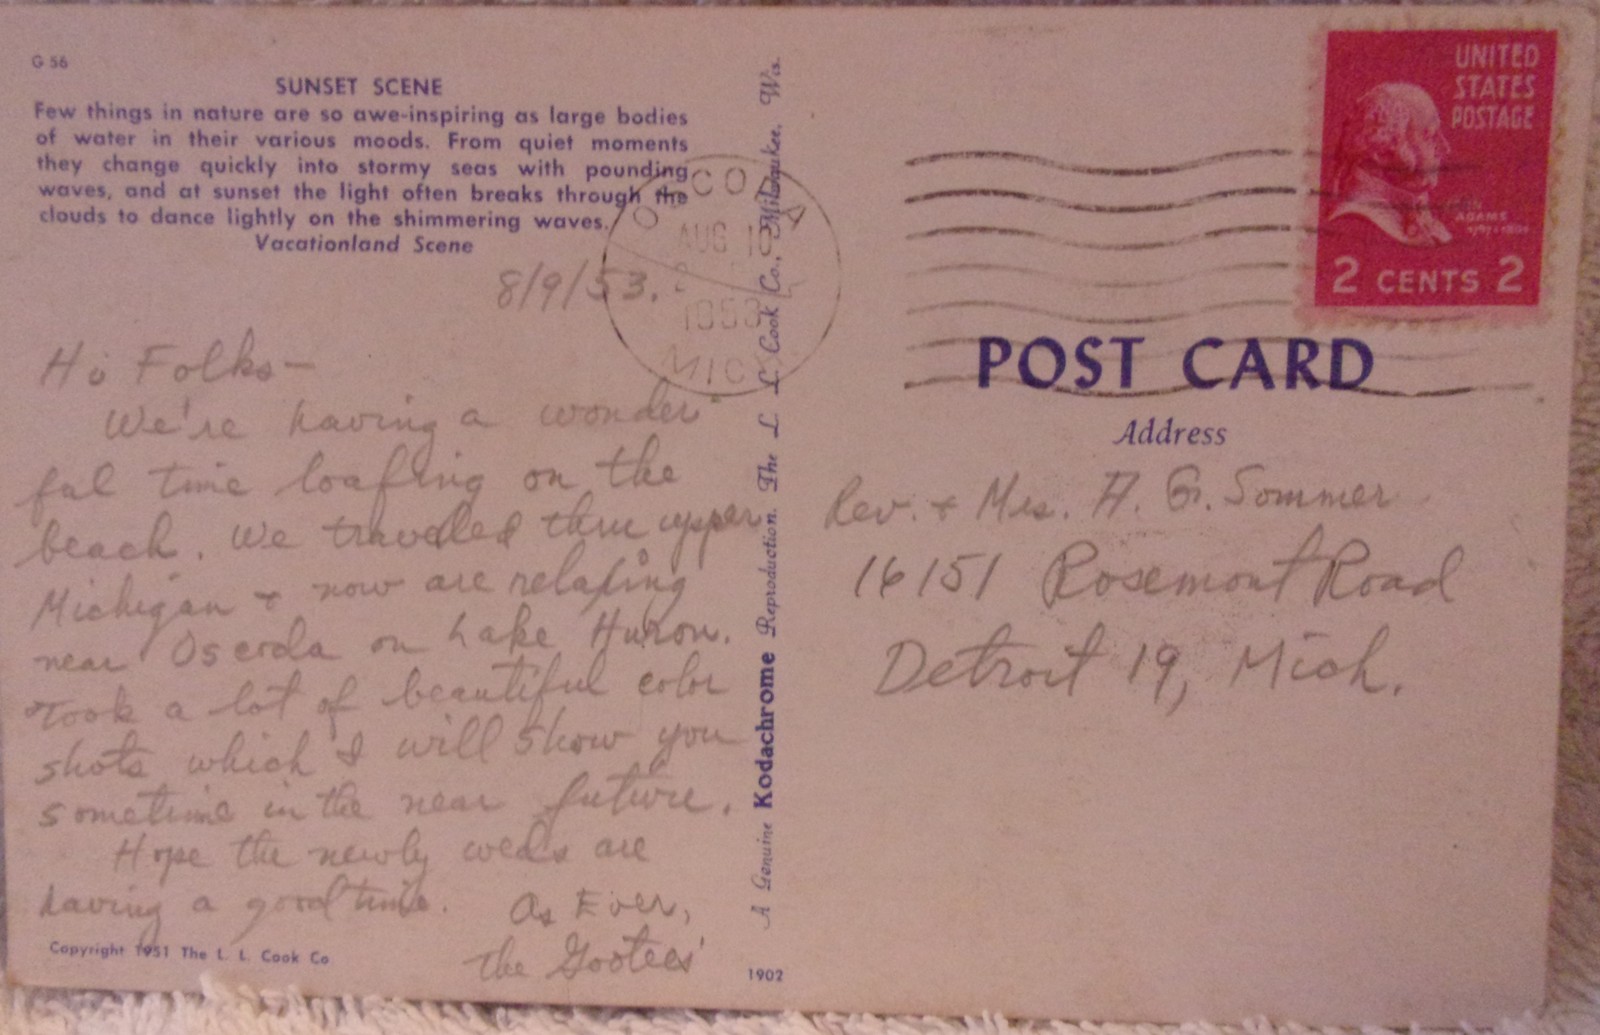 G 56
SUNSET SCENE
Few things in nature are so awe-inspiring as large bodies
of water in their various moods. From quiet moments
they change quickly into stormy seas with pounding
waves, and at sunset the light often breaks through the
clouds to dance lightly on the shimmering waves.
Vacationland Scene
8/9/53.
Hi Folks—
We're having a wonder-
ful time loafing on the
beach. We traveled thru upper
Michigan + now are relaxing
near Oscoda on Lake Huron.
Took a lot of beautiful color
shots which I will show you
sometime in the near future.
Hope the newly weds are
having a good time. As Ever,
the Gootees'
Copyright 1951 The L. L. Cook Co.
A Genuine Kodachrome Reproduction. The L. L. Cook Co., Milwaukee, Wis.
1902
OSCODA
AUG 10
1953
MICH
UNITED
STATES
POSTAGE
JOHN
ADAMS
2 CENTS 2
POST CARD
Address
Rev. + Mrs. A. G. Sommer
16151 Rosemont Road
Detroit 19, Mich.